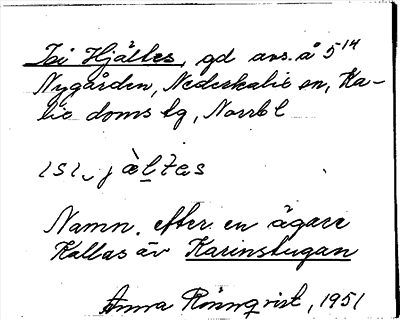 Isi Hjältes, gd avs. å 5 14
Nygården, Nederkalix sn, Ka-
lix doms lg, Norrb l
ısı‿jàl̠tes
Namn efter en ägare
Kallas äv Karinstugan
Anna Rönnqvist, 1951